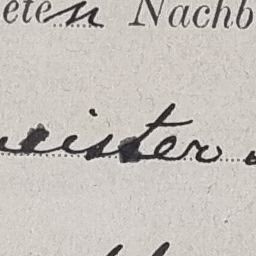 eten Nachb
eister